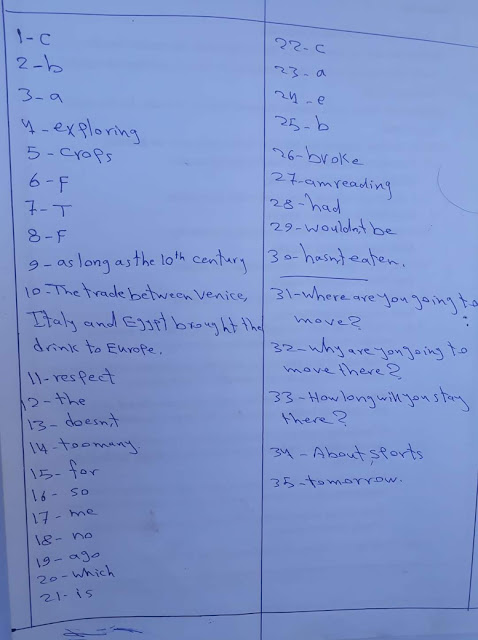 1-c
2-b
3-a
4-exploring
5-crops
6-F
7-T
8-F
9-as long as the 10th century
10-The trade between Venice,
Italy and Egypt brought the
drink to Europe.
11-respect
12-the
13-doesn't
14-too many
15-for
16-so
17-me
18-no
19-ago
20-which
21-is
22-c
23-a
24-e
25-b
26-broke
27-am reading
28-had
29-wouldn't be
30-hasn't eaten.
31-where are you going to
move?
32-why are you going to
move there?
33-How long will you stay
there?
34-About sports
35-tomorrow.